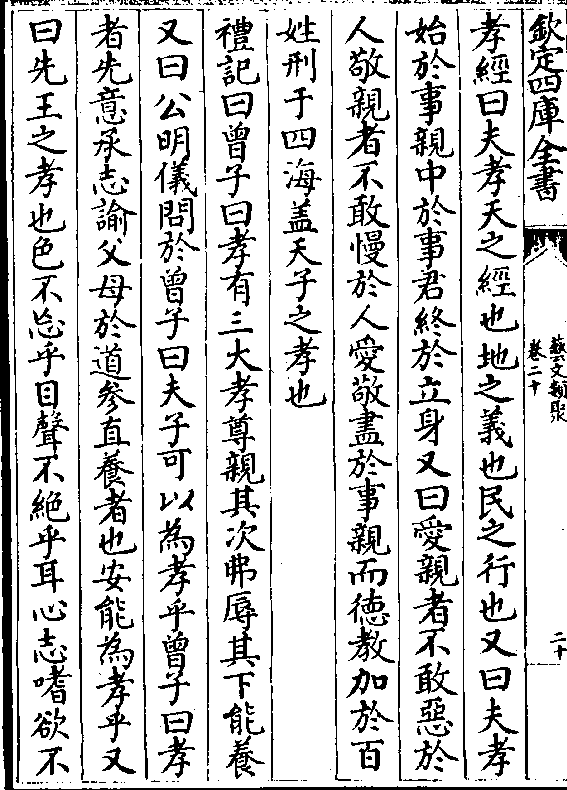 欽定四庫全書
藝文類聚
卷二十
二十
孝經曰夫孝天之經也地之義也民之行也又曰夫孝
始於事親中於事君終於立身又曰愛親者不敢惡於
人敬親者不敢慢於人愛敬盡於事親而德教加於百
姓刑于四海盖天子之孝也
禮記曰曾子曰孝有三大孝尊親其次弗辱其下能養
又曰公明儀問於曾子曰夫子可以為孝乎曾子曰孝
者先意承志諭父母於道參直養者也安能為孝乎又
曰先王之孝也色不忘乎目聲不絶乎耳心志嗜欲不